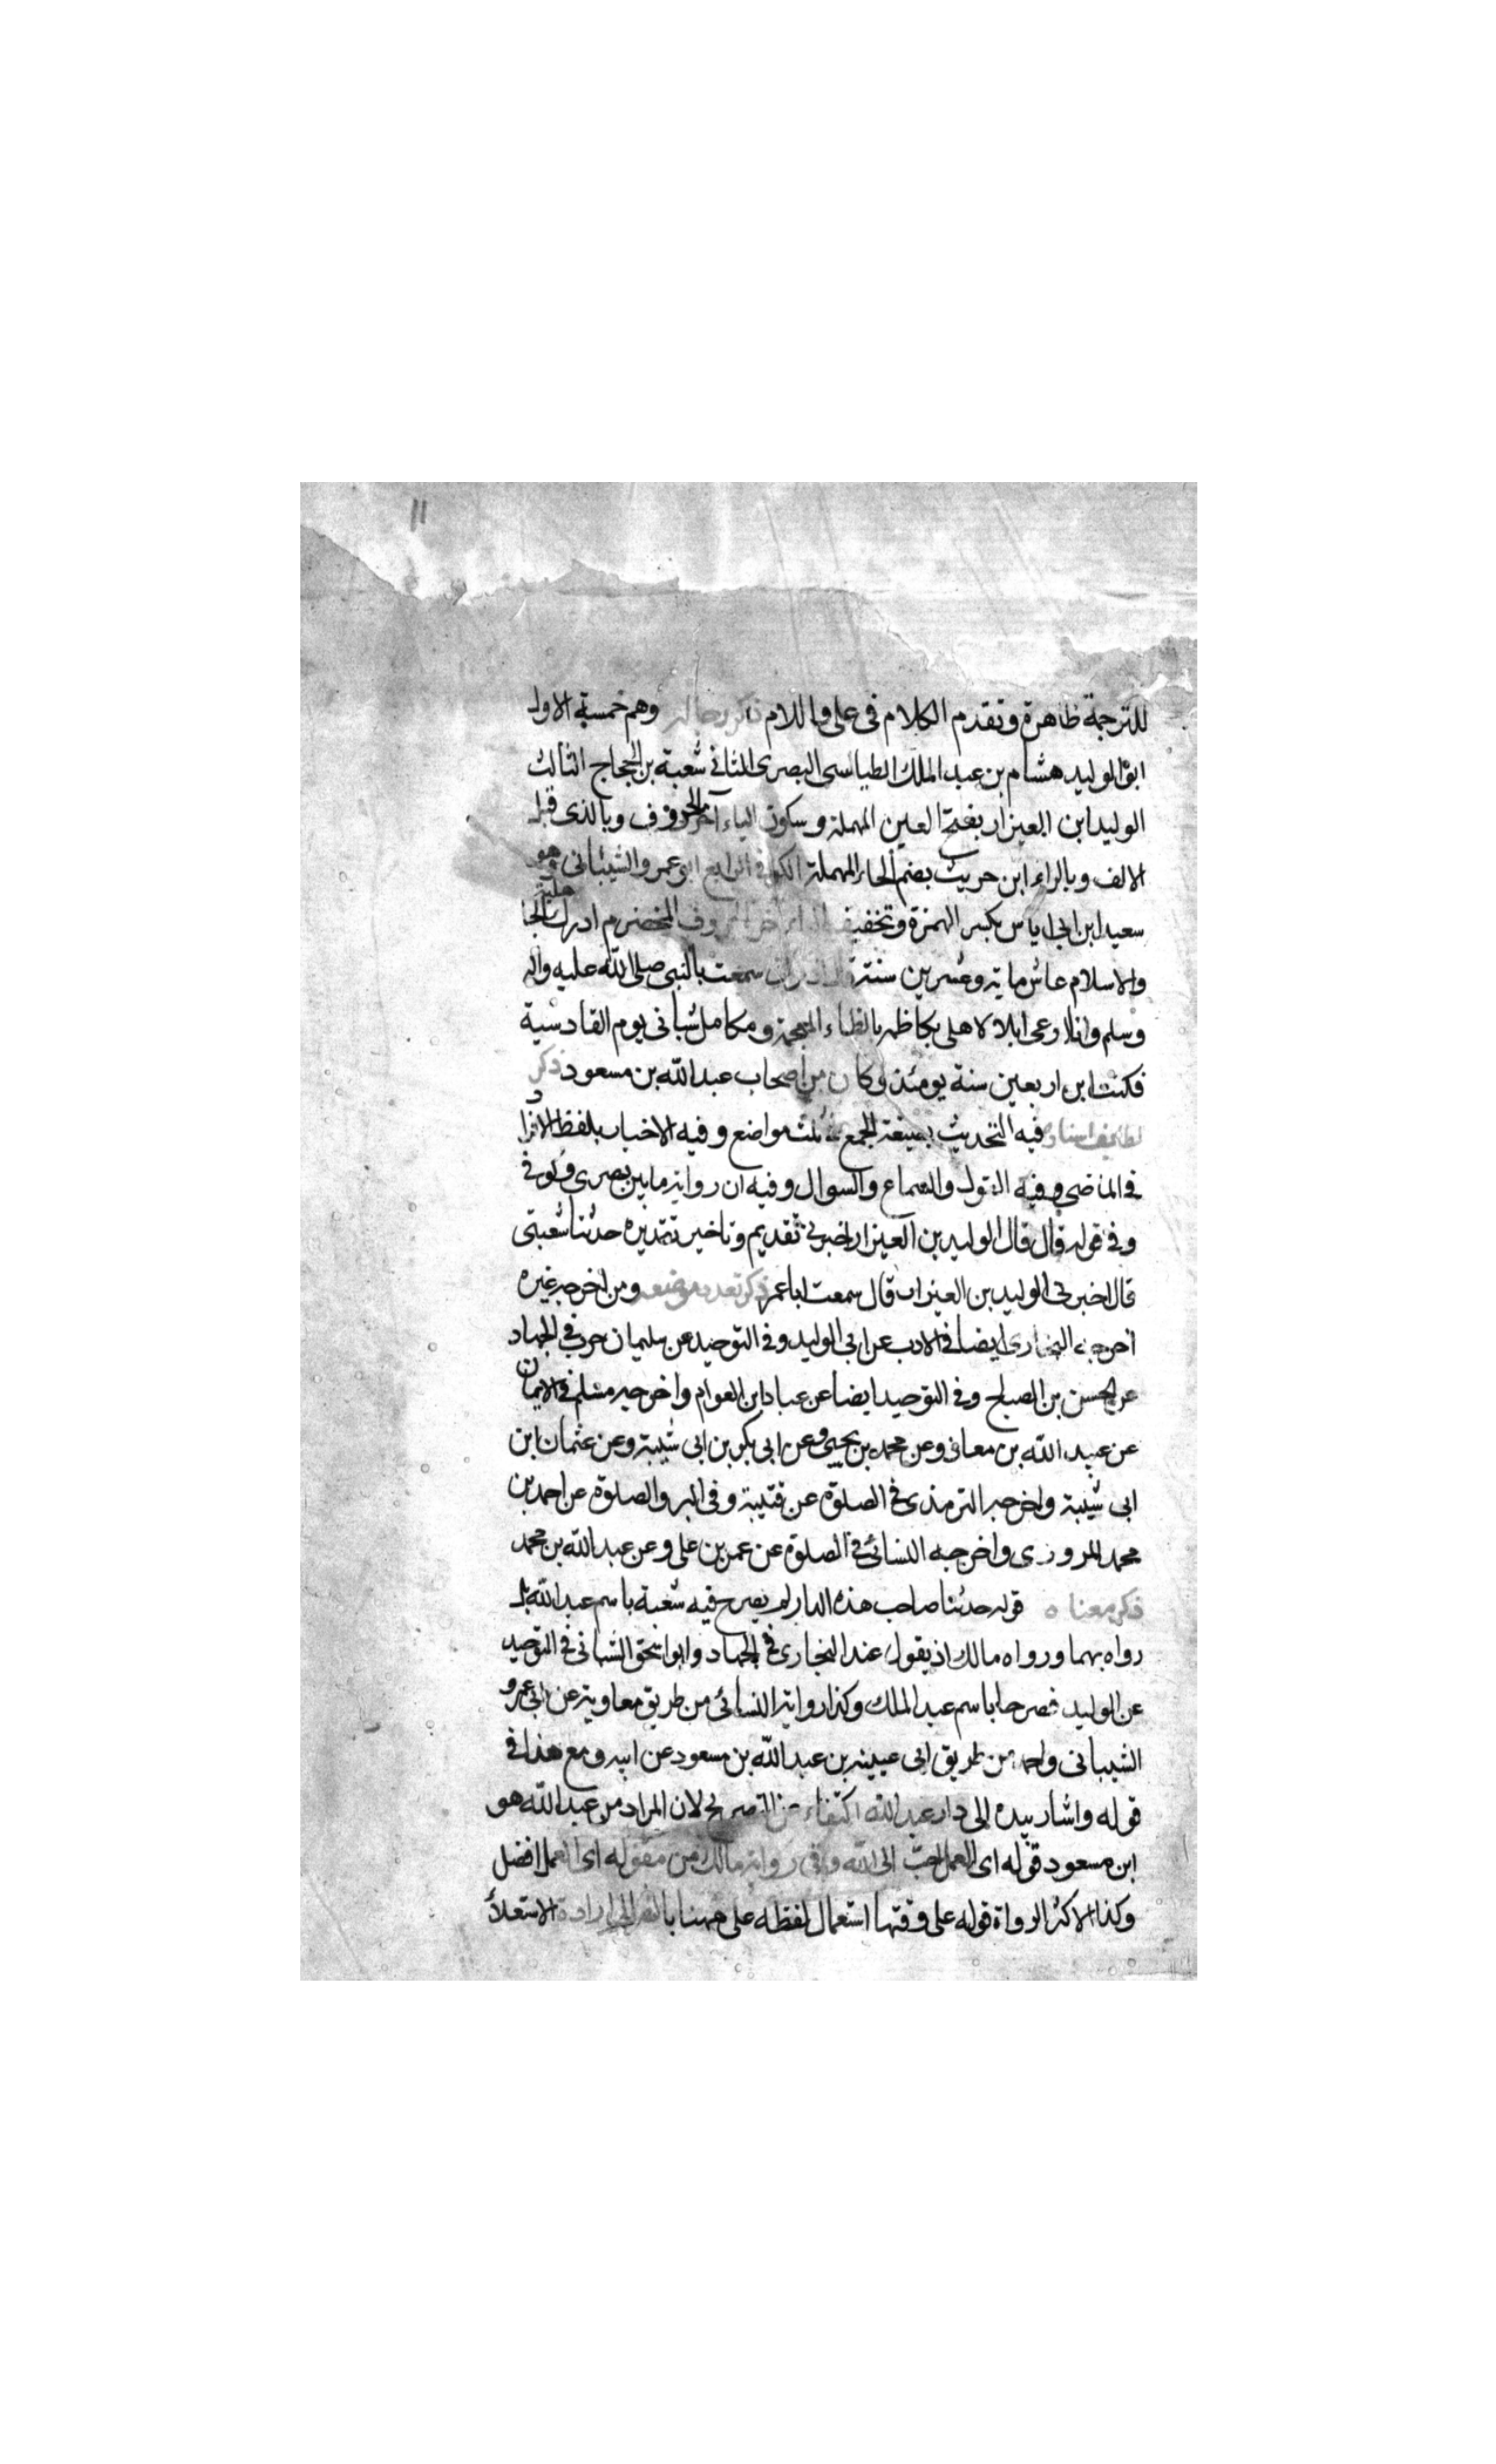 ١١
للترجمة ظاهرة وتقدم الكلام فى على واللام ذكر رجاله وهم خمسة الاول
ابو الوليد هشام بن عبد الملك الطيالسى البصرى الثانى شعبة بن الحجاج الثالث
الوليد ابن العيزار بفتح العين المهملة وسكون الياء آخر الحروف وبالزى قبل
الالف وبالراء ابن حريث بضم الحاء المهملة الكوفى الرابع ابو عمرو الشيبانى وهو
سعيد ابن ابى اياس بكسر الهمزة وتخفيف الياء آخر الحروف المخضرم ادرك الجاهلية
والاسلام عاش ماية وعشرين سنة قال اذكر انى سمعت بالنبى صلى الله عليه واله
وسلم وانا ارعى ابلا لاهلى بكاظمه بالظاء المعجمة و مكامل شبانى يوم القادسية
فكنت ابن اربعين سنة يومئذ وكان من اصحاب عبد الله بن مسعود ذكر
لطايف اسناده فيه التحديث بصيغة الجمع فى ثلث مواضع وفيه الاخبار بلفظ الافراد
فى الماضى وفيه القول والسماع والسوال وفيه ان رواية ما بين بصرى وكوفى
وفى قوله قال قال الوليد بن العيزار اخبرنى تقديم وتاخير تقديره حدثنا شعبتى
قال اخبرنى الوليد بن العيزار قال سمعت ابا عمر ذكر تعدد موضعه ومن اخرجه غيره
اخرجه البخارى ايضا فى الادب عن ابى الوليد وفى التوحيد عن سليمان حرب فى الجهاد
عن الحسن بن الصباح وفى التوحيد ايضا عن عباد ابن العوام واخرجه مسلم فى الايمان
عن عبيد الله بن معاذ وعن محمد بن يحيى وعن ابى بكر بن ابى شيبة وعن عثمان ابن
ابى شيبة واخرجه الترمذى فى الصلوة عن قتيبة وفى البر والصلوة عن احمد بن
محمد المروزى واخرجه النسائى فى الصلوة عن عمر بن على وعن عبد الله بن محمد
ذكر معناه قوله حدثنا صاحب هذه الدار لم يصرح فيه شعبة باسم عبد الله بل
رواه بهما ورواه مالك اذ يقول عند البخارى فى الجهاد وابو اسحق الشيبانى فى التوحيد
عن الوليد فصرحا باسم عبد الملك وكذا رواية النسائى من طريق معاوية عن ابى عمرو
الشيبانى واحمد من طريق ابى عبيده بن عبد الله بن مسعود عن ابيه ومع هذا فى
قوله واشار بيده الى دار عبد الله اكتفاء عن التصريح لان المراد من عبد الله هو
ابن مسعود قوله اى العمل احب الى الله وفى رواية مالك من مقوله اى العمل افضل
وكذا الاكثر الرواة قوله على وقتها استعمال لفظه على ههنا بالنظر الى ارادة الاستعلاء